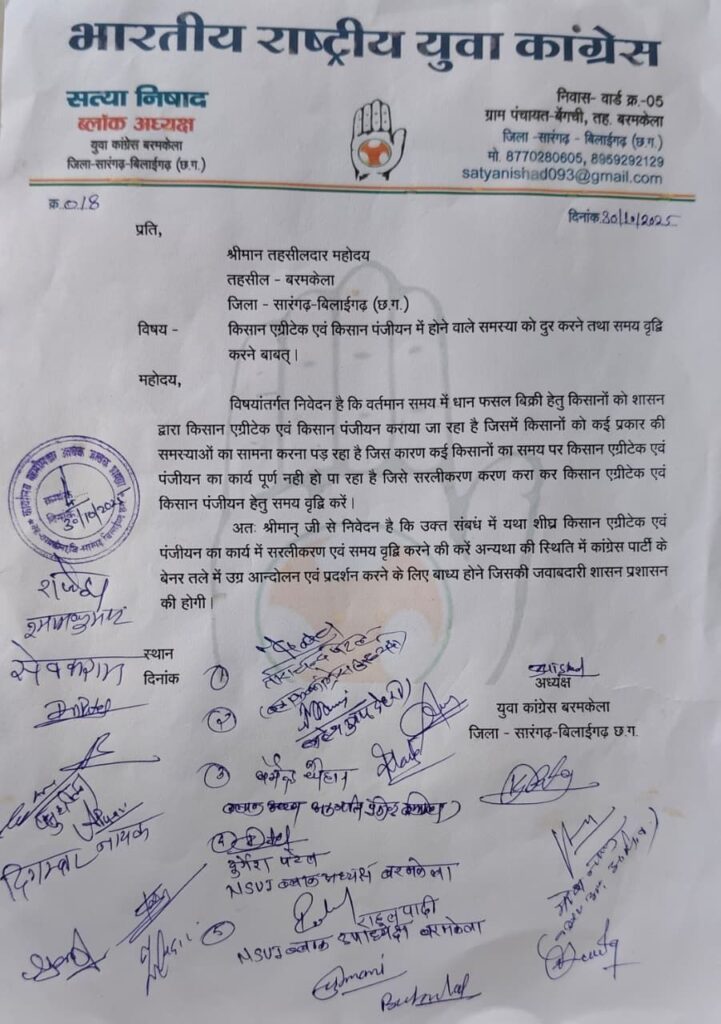 भारतीय राष्ट्रीय युवा कांग्रेस
सत्या निषाद
ब्लॉक अध्यक्ष
युवा कांग्रेस बरमकेला
जिला-सारंगढ़-बिलाईगढ़ (छ.ग.)
निवास- वार्ड क्र.-05
ग्राम पंचायत-बेंगची, तह. बरमकेला
जिला -सारंगढ़ - बिलाईगढ़ (छ.ग.)
मो. 8770280605, 8959292129
satyanishad093@gmail.com
क्र.018
दिनांक.30/10/2025
प्रति,
श्रीमान तहसीलदार महोदय
तहसील - बरमकेला
जिला - सारंगढ़-बिलाईगढ़ (छ.ग.)
विषय - किसान एग्रीटेक एवं किसान पंजीयन में होने वाले समस्या को दुर करने तथा समय वृद्वि
करने बाबत्।
महोदय,
विषयांतर्गत निवेदन है कि वर्तमान समय में धान फसल बिक्री हेतु किसानों को शासन
द्वारा किसान एग्रीटेक एवं किसान पंजीयन कराया जा रहा है जिसमें किसानों को कई प्रकार की
समस्याओं का सामना करना पड़ रहा है जिस कारण कई किसानों का समय पर किसान एग्रीटेक एवं
पंजीयन का कार्य पूर्ण नही हो पा रहा है जिसे सरलीकरण करण करा कर किसान एग्रीटेक एवं
किसान पंजीयन हेतु समय वृद्वि करें।
अतः श्रीमान् जी से निवेदन है कि उक्त संबंध में यथा शीघ्र किसान एग्रीटेक एवं
पंजीयन का कार्य में सरलीकरण एवं समय वृद्वि करने की करें अन्यथा की स्थिति में कांग्रेस पार्टी के
बेनर तले में उग्र आन्दोलन एवं प्रदर्शन करने के लिए बाध्य होने जिसकी जवाबदारी शासन प्रशासन
की होगी।
30/10/2025
सेवकराम
स्थान
दिनांक
अध्यक्ष
युवा कांग्रेस बरमकेला
जिला - सारंगढ़-बिलाईगढ़ छ.ग.
दिगम्बर नायक
NSUI ब्लाक अध्यक्ष बरमकेला
राहुल पाढी
NSUI ब्लाक उपाध्यक्ष बरमकेला